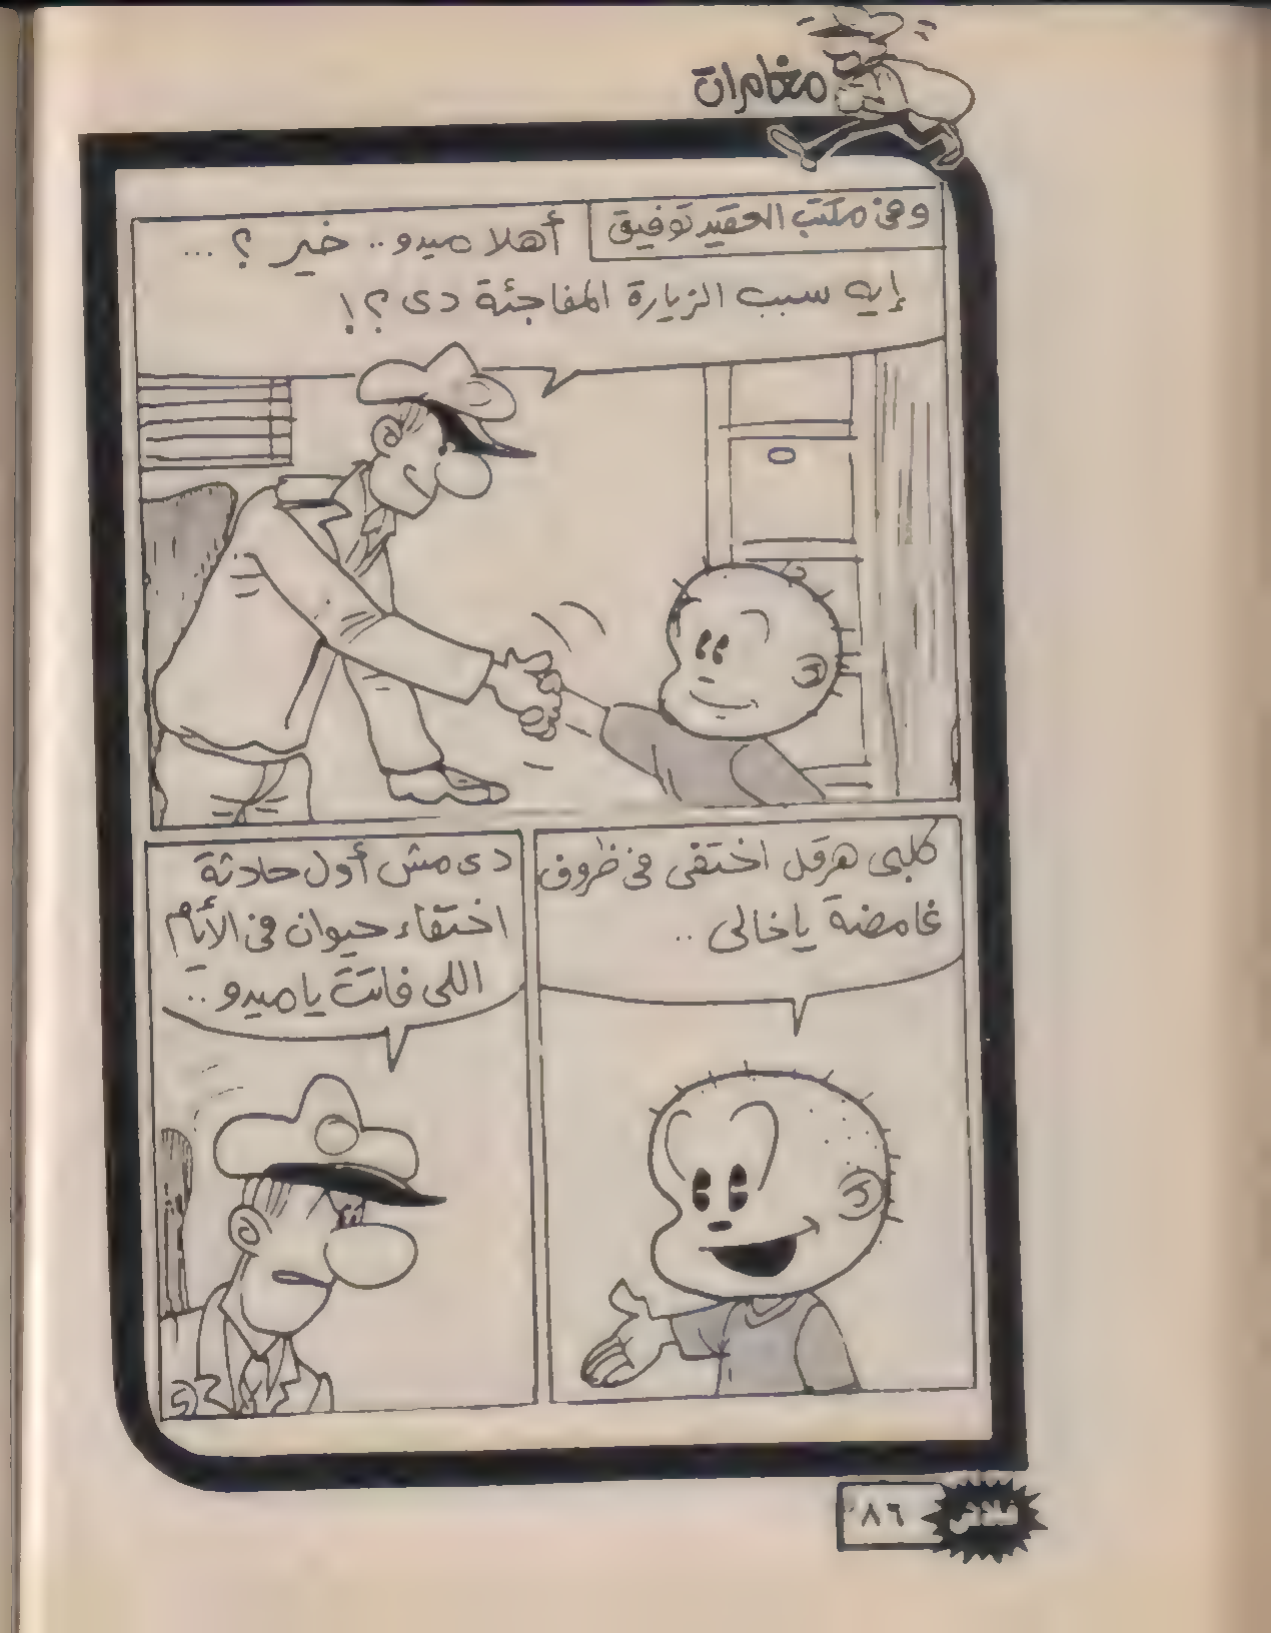 مغامرات
وفى مكتب العقيد توفيق
أهلا ميدو.. خير ؟ ...
إيه سبب الزيارة المفاجئة دى ؟!
كلبى هرقل اختفى فى ظروف
غامضة ياخالى ..
دى مش أول حادثة
اختفاء حيوان فى الأيام
اللى فاتت يا ميدو ..
فلاش
٨٦